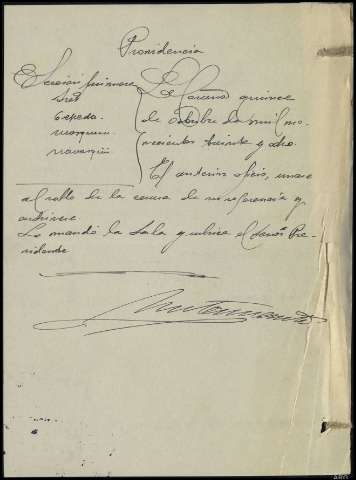 Providencia
Sección primera
Sres
Cepeda
La Coruña quince
de Octubre de mil no-
vecientos treinta y ocho.
El anterior oficio, unase
al rollo de la causa de su referencia y
archivese
Lo mandó la Sala y rubrica el Señor Pre-
sidente